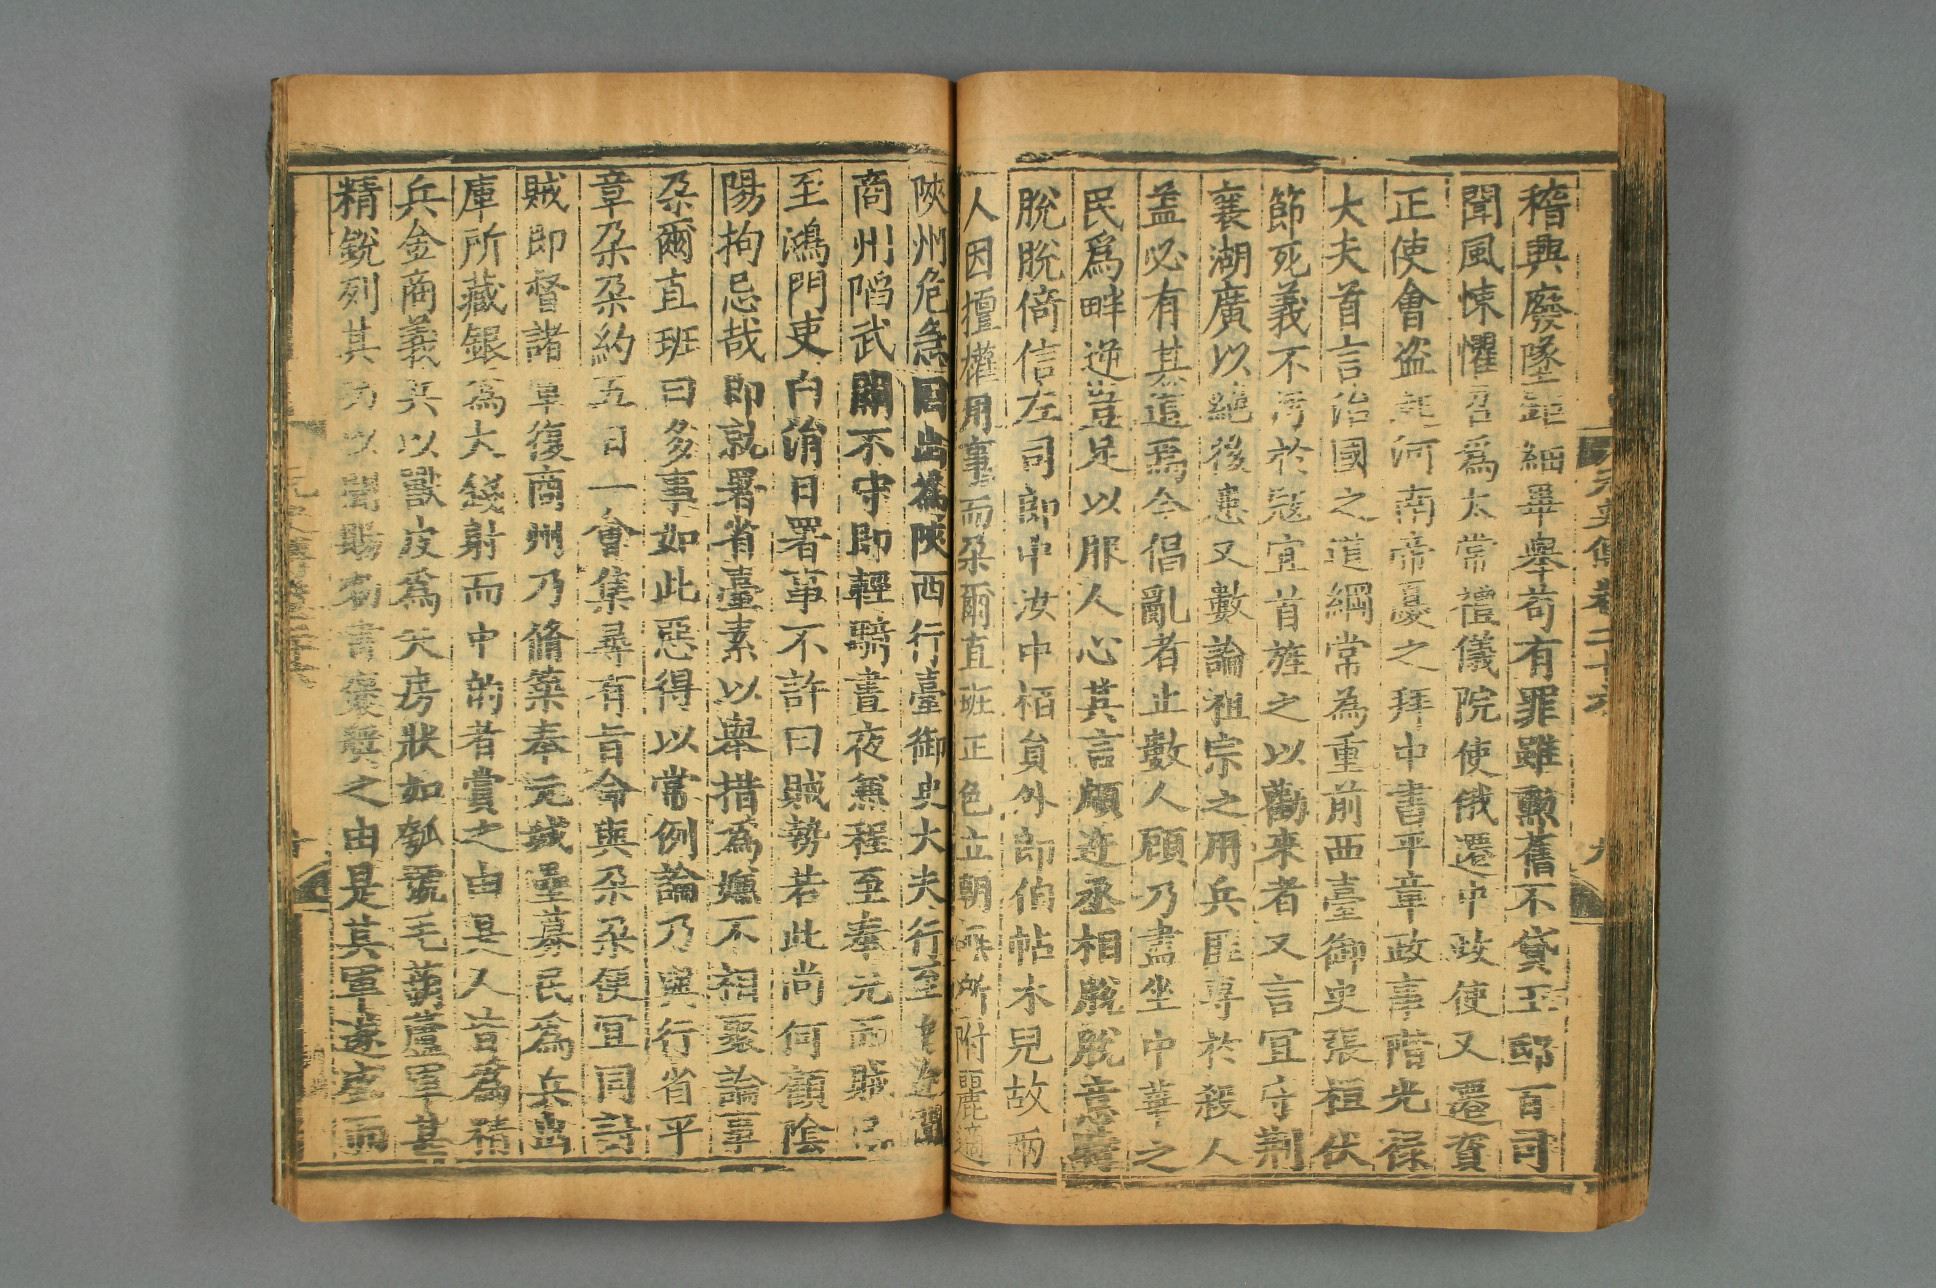 元史傳卷二十六
九
稽興廢墜距細畢舉苟有罪雖勲舊不貸王邸百司
聞風悚懼召爲太常禮儀院使俄遷中政使又遷資
正使會盗起河南帝憂之拜中書平章政事階光祿
大夫首言治國之道綱常為重前西臺御史張桓伏
節死義不汚於冦宜首旌之以勸來者又言宜守荆
襄湖廣以絶後患又數論祖宗之用兵匪專於殺人
盖必有其道焉今倡亂者止數人顧乃盡坐中華之
民爲畔逆豈足以服人心其言頗迕丞相脫脫意時
脫脫倚信左司郎中汝中栢員外郎伯帖木兒故兩
人因擅權用事而朶爾直班正色立朝無所附麗適
陝州危急因出爲陝西行臺御史大夫行至中途聞
商州陷武關不守即輕騎晝夜兼程至奉元而賊已
至鴻門吏白涓日署事不許曰賊勢若此尚何顧陰
陽拘忌哉即就署省臺素以舉措爲嫌不相聚論事
朶爾直班曰多事如此惡得以常例論乃與行省平
章朶朶約五日一會集尋有旨命與朶朶便宜同討
賊即督諸軍復商州乃脩築奉元城壘募民爲兵出
庫所藏銀爲大錢射而中的者賞之由是人皆爲精
兵金商義兵以獸皮爲矢房狀如瓠號毛葫蘆軍甚
精銳列其功以聞賜勑書褒奬之由是其軍遂盛而
元史傳卷二十六
十